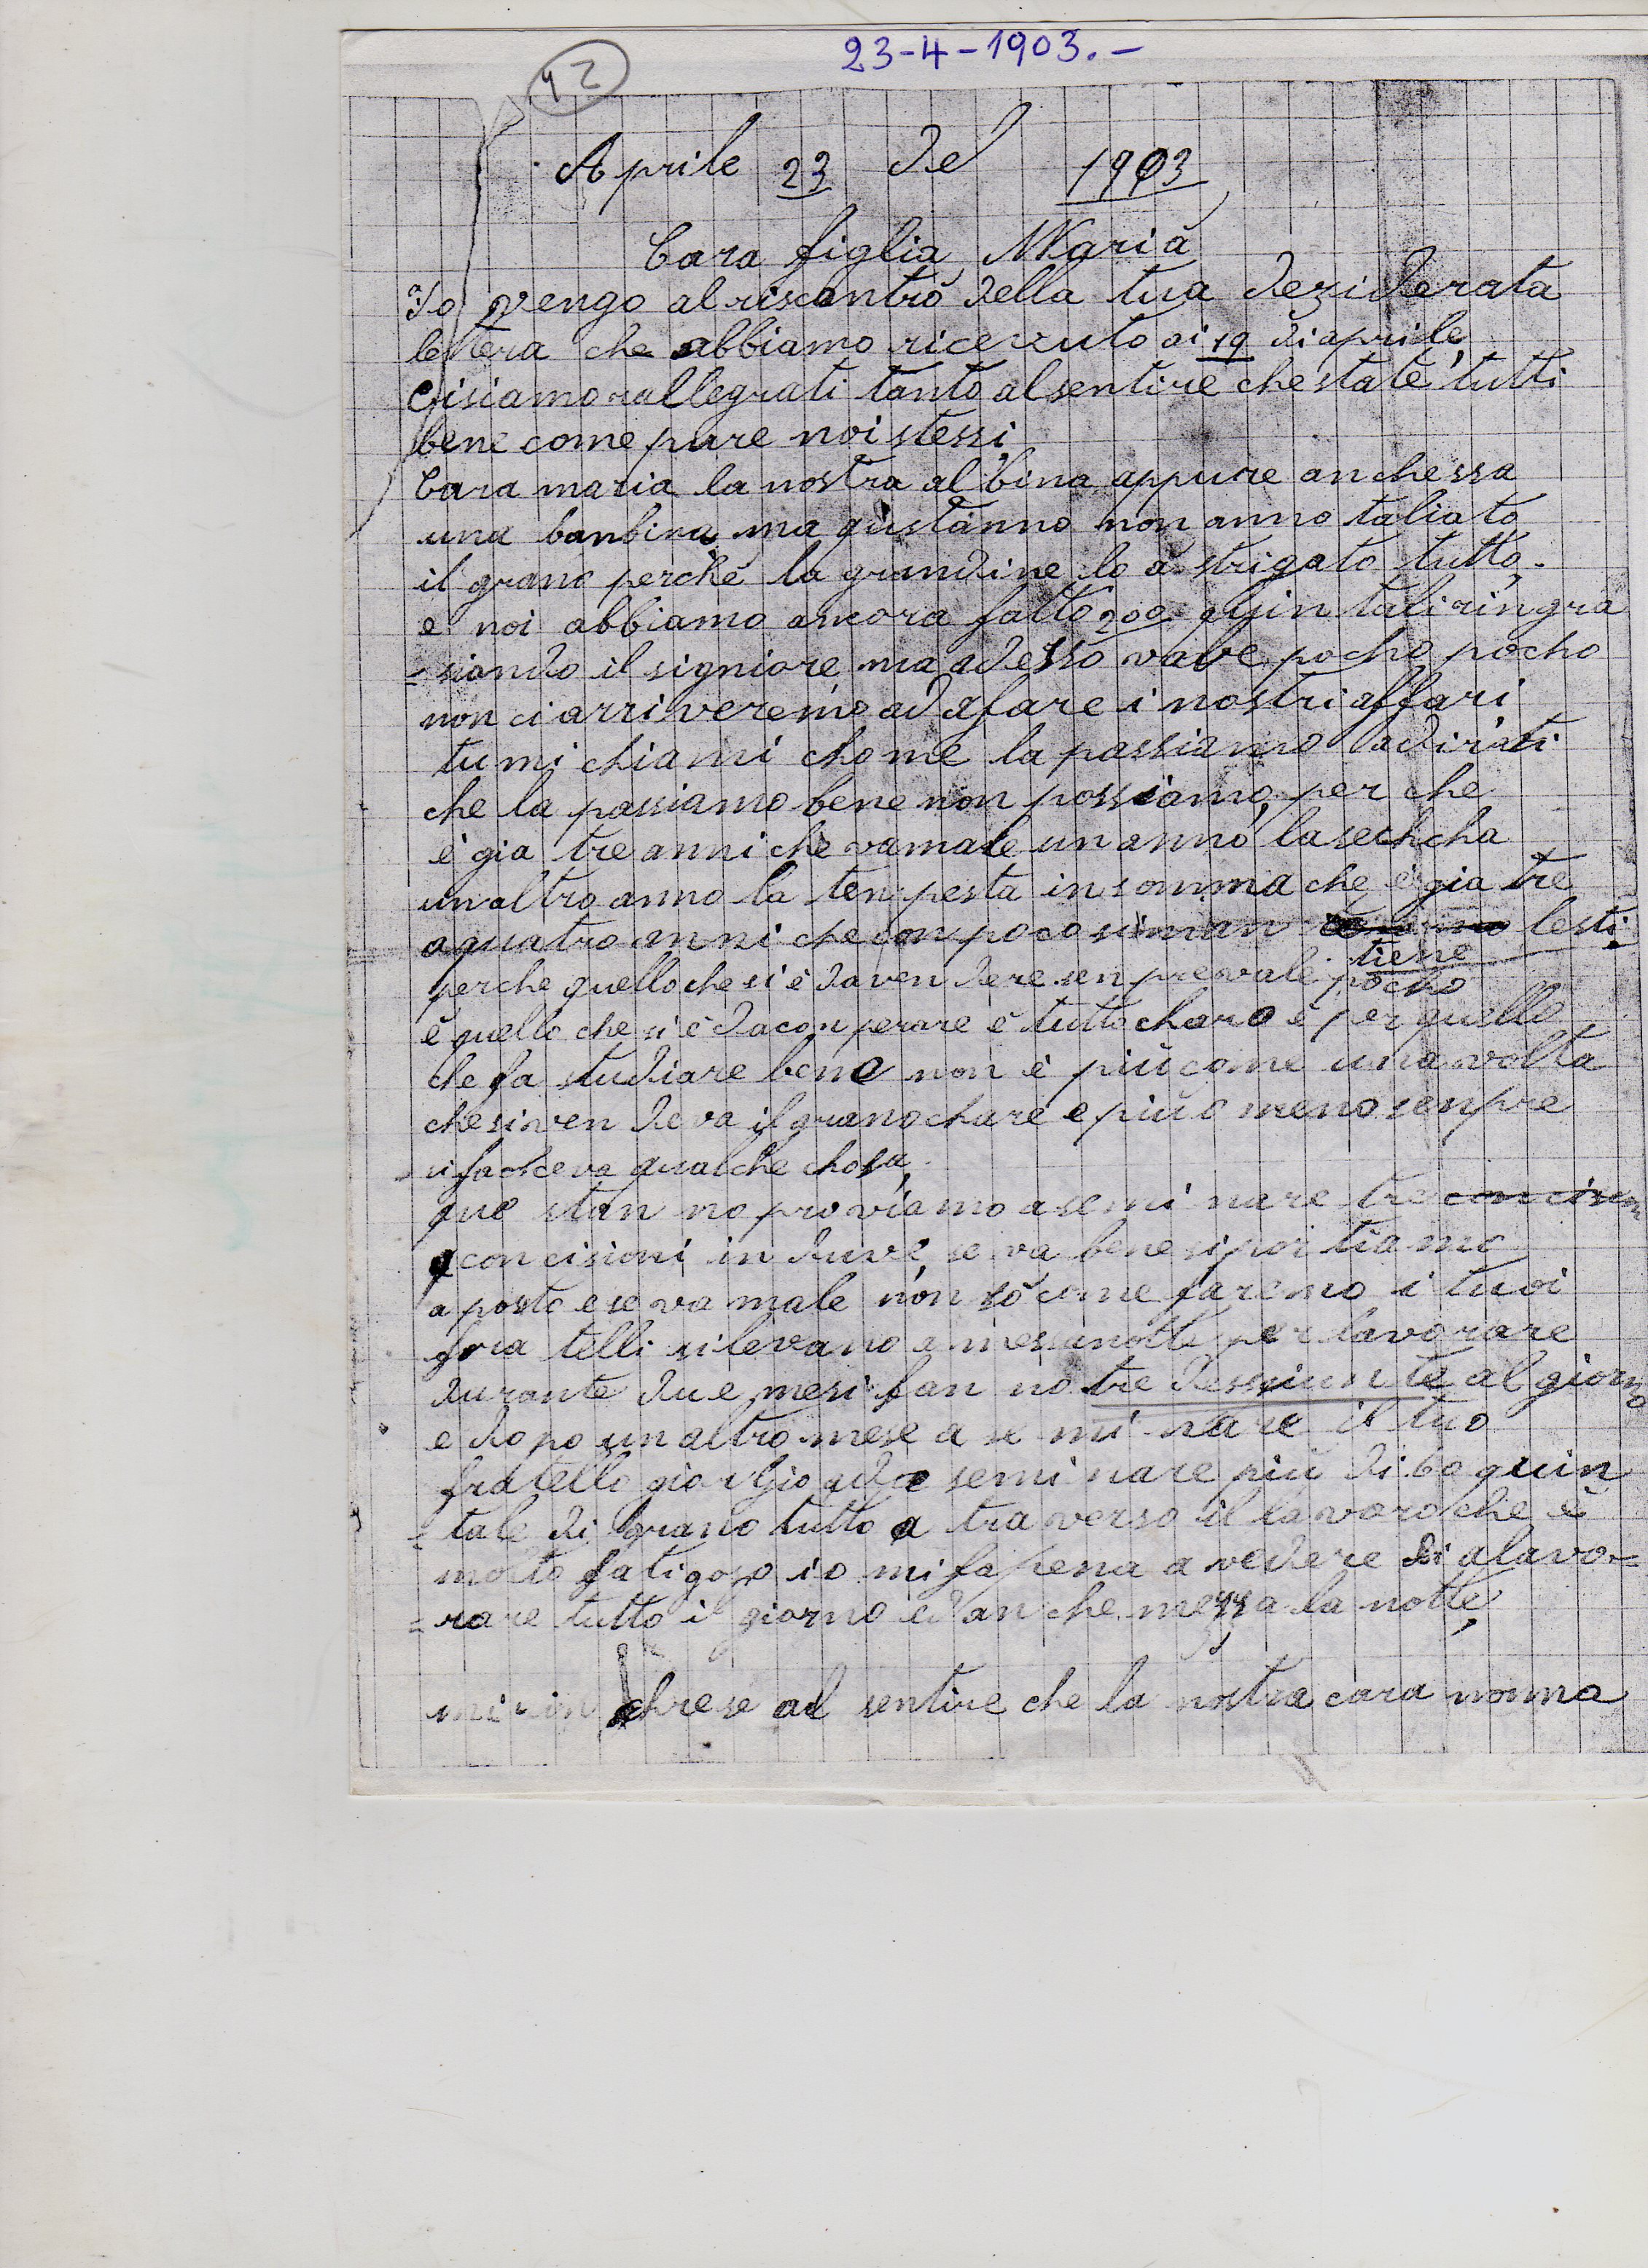 23-4-1903.-
42
Aprile 23 del 1903
Cara figlia Maria
Io vengo al riscontro della tua deziderata
lettera che abbiamo ricevuto ai 19 di aprile
Cisiamo rallegrati tanto al sentire che state tutti
bene come pure noi stessi
Cara maria la nostra albina appure anchessa
una banbina ma quistanno non anno taliato
il grano perche la grandine lo a strigato tutto.
e noi abbiamo ancora fatto 200 quintali ringra
=siando il signiore ma adesso vale pocho pocho
non ci arriveremo ad afare i nostri affari
tu mi chiami chome la passiamo a dirti
che la passiamo bene non possiamo per che
è gia tre anni che va male un anno la sechcha
un altro anno la tenpesta in somma che è gia tre
a quatro anni che con poco si man tiene lesti.
perche quello che si è da ven dere sen pre vale pocho
è quello che si è da con perare è tutto charo e per quello
che fa studiare bene non è più come una volta
che si ven deva il grano charo e più o meno senpre
si faceva qualche chosa,
que stan no proviamo a semi nare tre concisioni
concisioni in duve se va bene si por tiamo
a posto e se va male non so come faremo i tuoi
fra telli si levano a messanotte per lavorare
durante du e mesi fan no tre dessiunte al giorno
e dopo un altro mese a se mi nare il tuo
fratello giorgio a da seminare più di 60 quin
=tale di grano tutto a tra verso il lavoro che è
molto fatigoso io mi fa pena a vedere di alavo=
=rare tutto il giorno ed an che mezza la notte
mi rin chrese al sentire che la nostra cara nonna